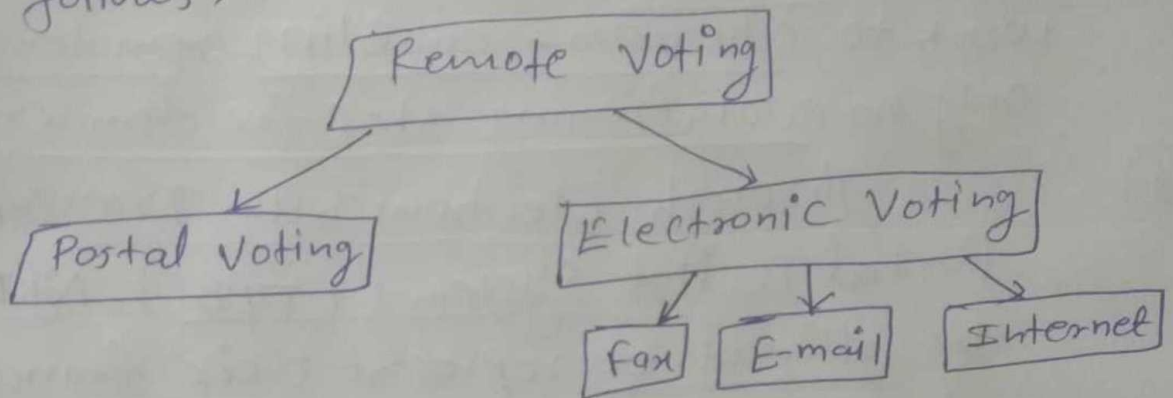 Remote Voting
Postal Voting
Electronic Voting
Fax
E-mail
Internet